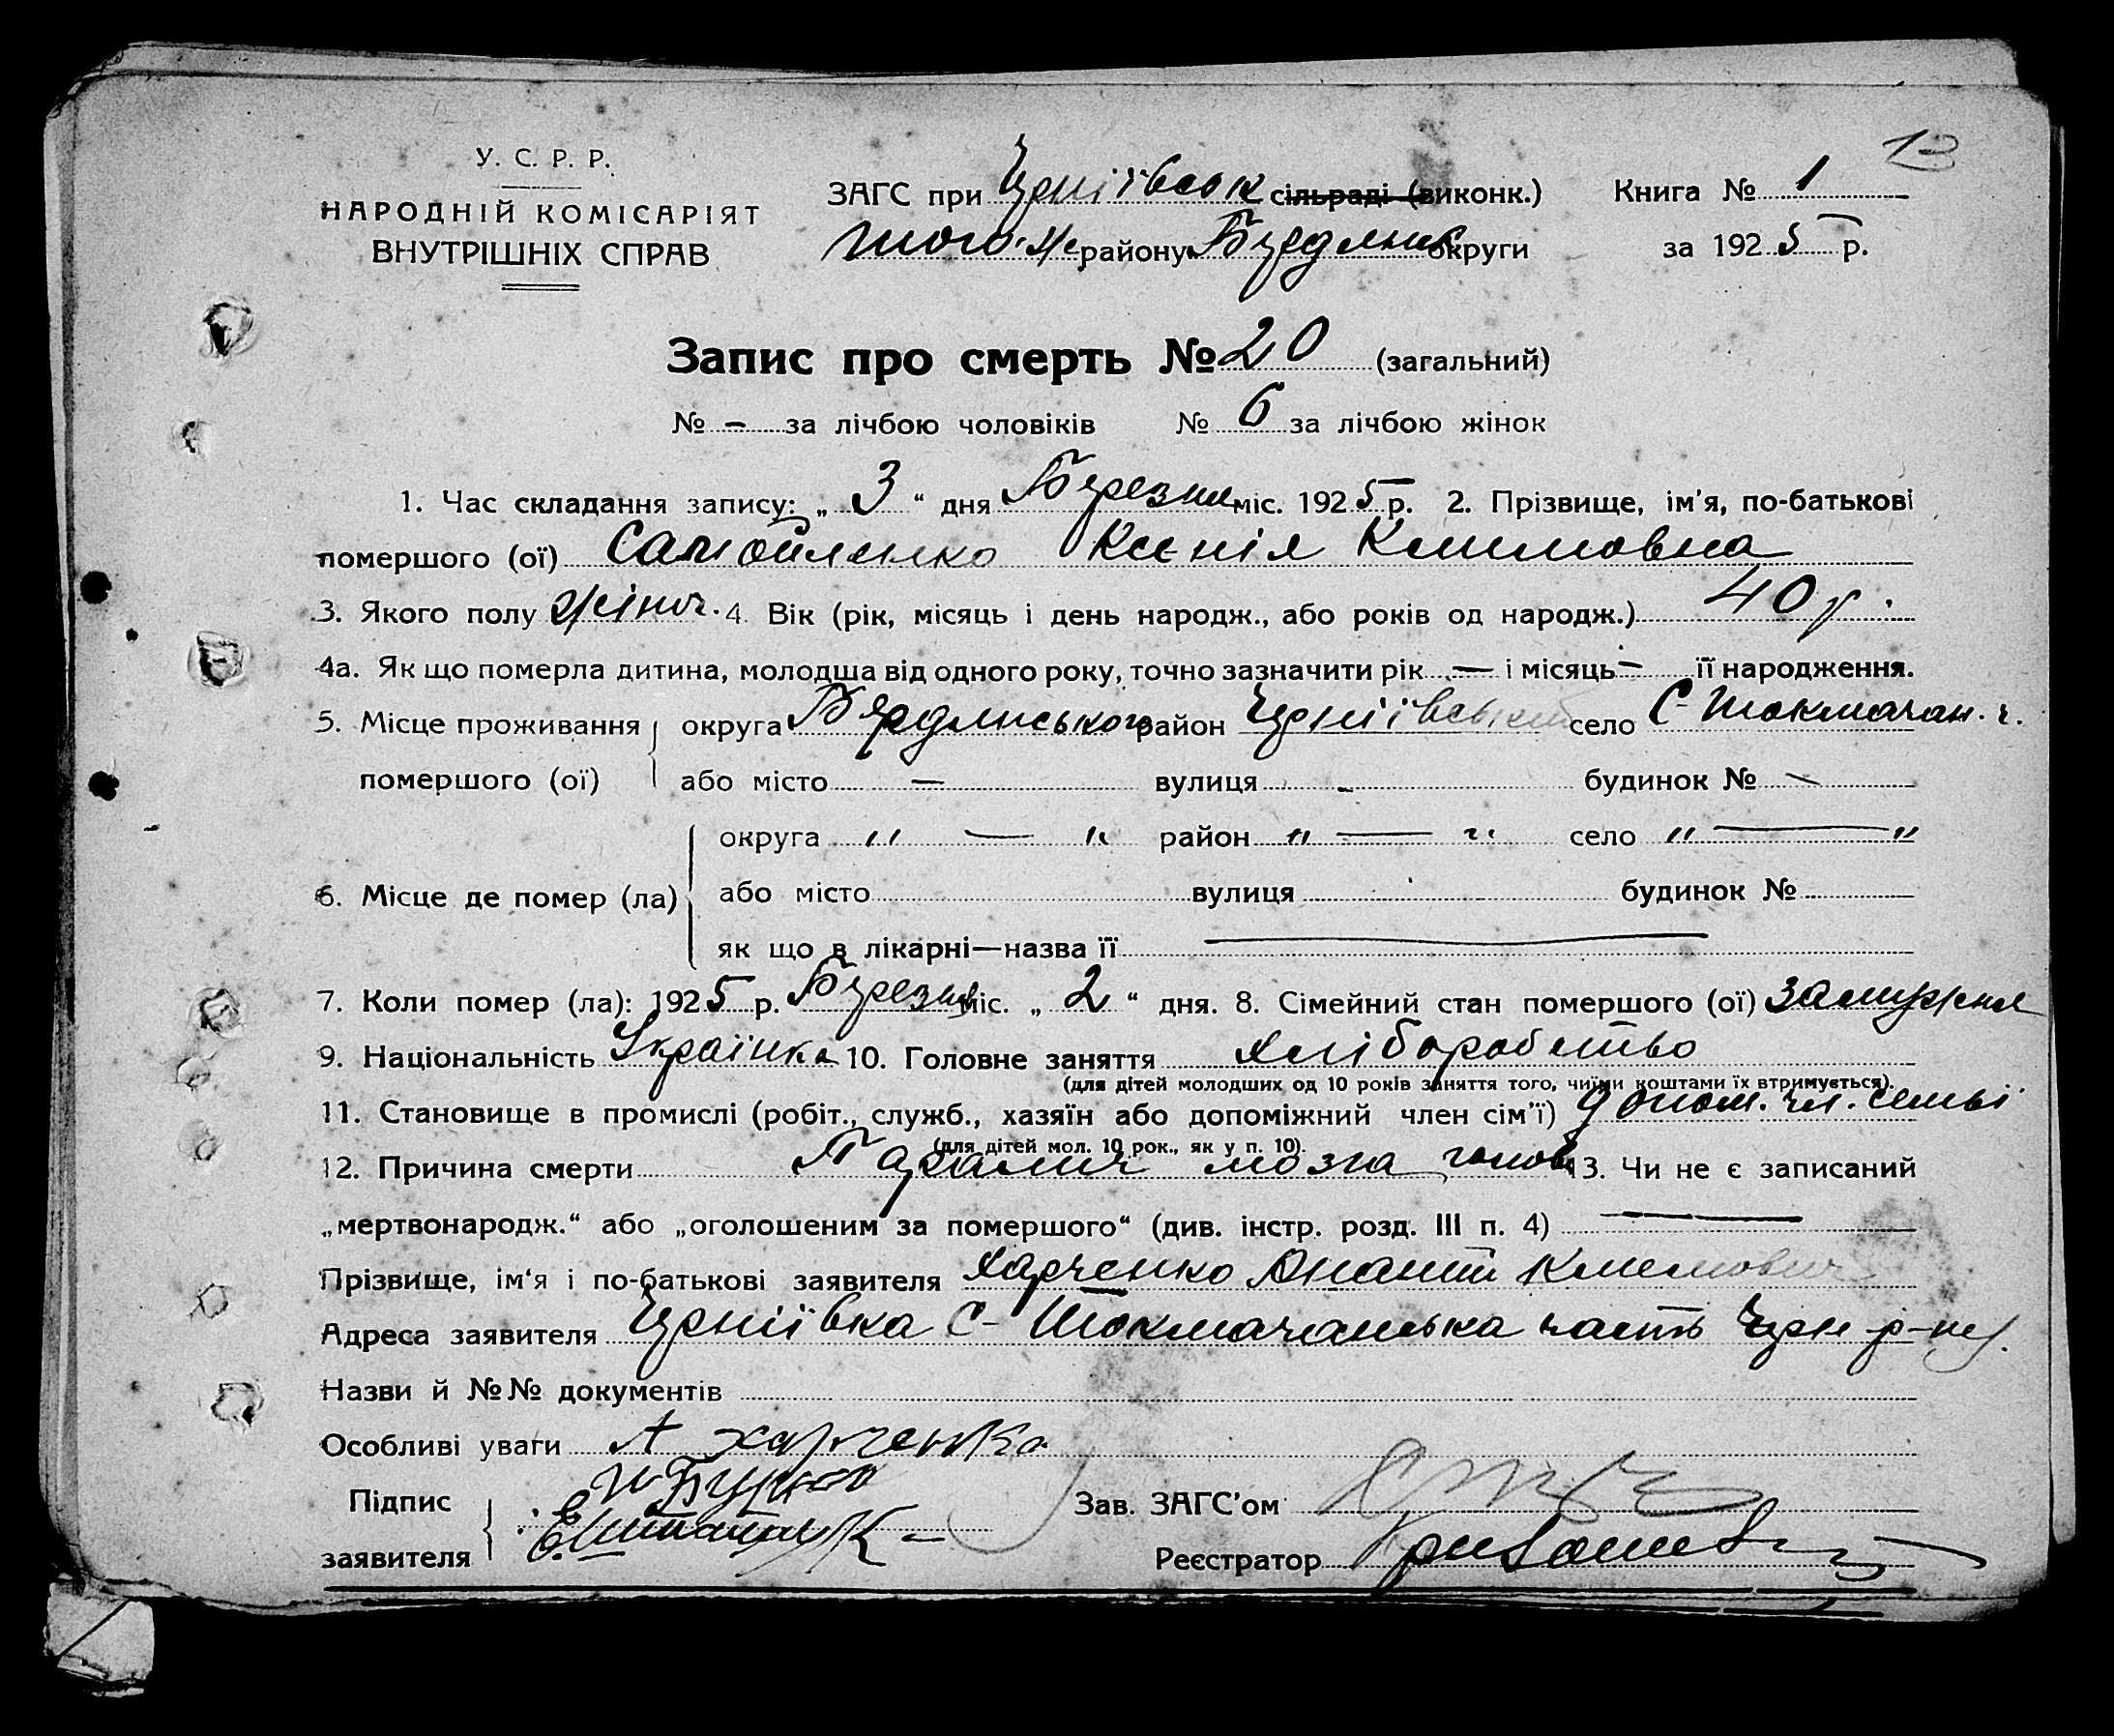 13
У. С. Р. Р.
НАРОДНІЙ КОМІСАРІЯТ
ВНУТРІШНІХ СПРАВ
ЗАГС при сільраді (виконк.) Книга № 1
того-ж району Бердянс. округи за 1925 р.
Запис про смерть № 20 (загальний)
№ - за лічбою чоловіків № 6 за лічбою жінок
1. Час складання запису: „ 3 “ дня Березня міс. 1925 р. 2. Прізвище, ім'я, по-батькові
помершого (ої) Самойленко Ксенія Климовна
3. Якого полу жіноч. 4. Вік (рік, місяць і день народж., або років од народж.) 40 р.
4а. Як що померла дитина, молодша від одного року, точно зазначити рік — і місяць - її народження.
5. Місце проживання округа Бердянського район Чернiївський село С-Токмачан. ч.
помершого (ої) або місто — вулиця - будинок № -
округа " — " район " — " село " — "
6. Місце де помер (ла) або місто вулиця будинок №
як що в лікарні—назва її —
7. Коли помер (ла): 1925 р. Березня міс. „ 2 “ дня. 8. Сімейний стан помершого (ої) замужня
9. Національність Українка 10. Головне заняття хліборобство
(для дітей молодших од 10 років заняття того, чиїми коштами їх втримується).
11. Становище в промислі (робіт., служб., хазяїн або допоміжний член сім'ї) допом. чл. семьї
(для дітей мол. 10 рок., як у п. 10).
12. Причина смерти Параліч мозга голов 13. Чи не є записаний
„мертвонародж.“ або „оголошеним за помершого“ (див. інстр. розд. III п. 4) —
Прізвище, ім'я і по-батькові заявителя Харченко Ананій Климович
Адреса заявителя Чернiївка С-Токмачанська часть Черн р-ну.
Назви й №№ документів
Особливі уваги А Харченко
Підпис
заявителя
Зав. ЗАГС'ом
Реєстратор